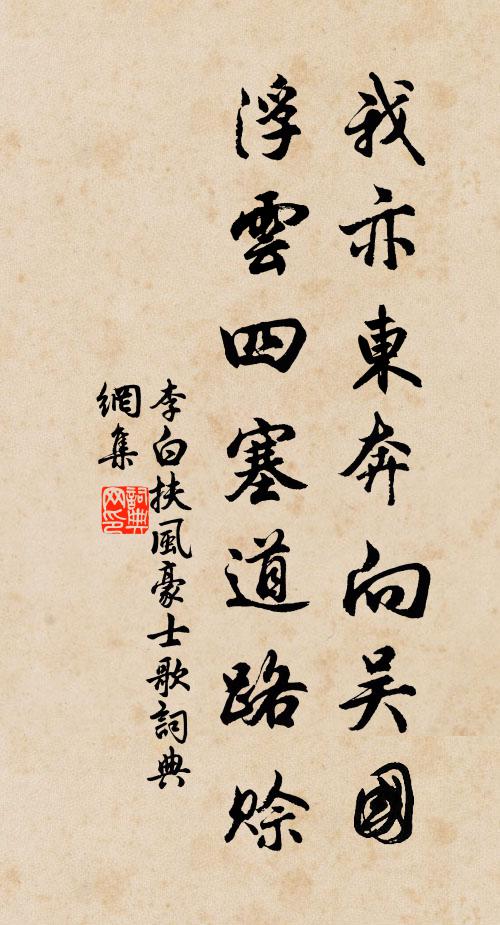 我亦東奔向吴國
浮雲四塞道路賒
李白扶風豪士歌詞典
網集
詞典
网印